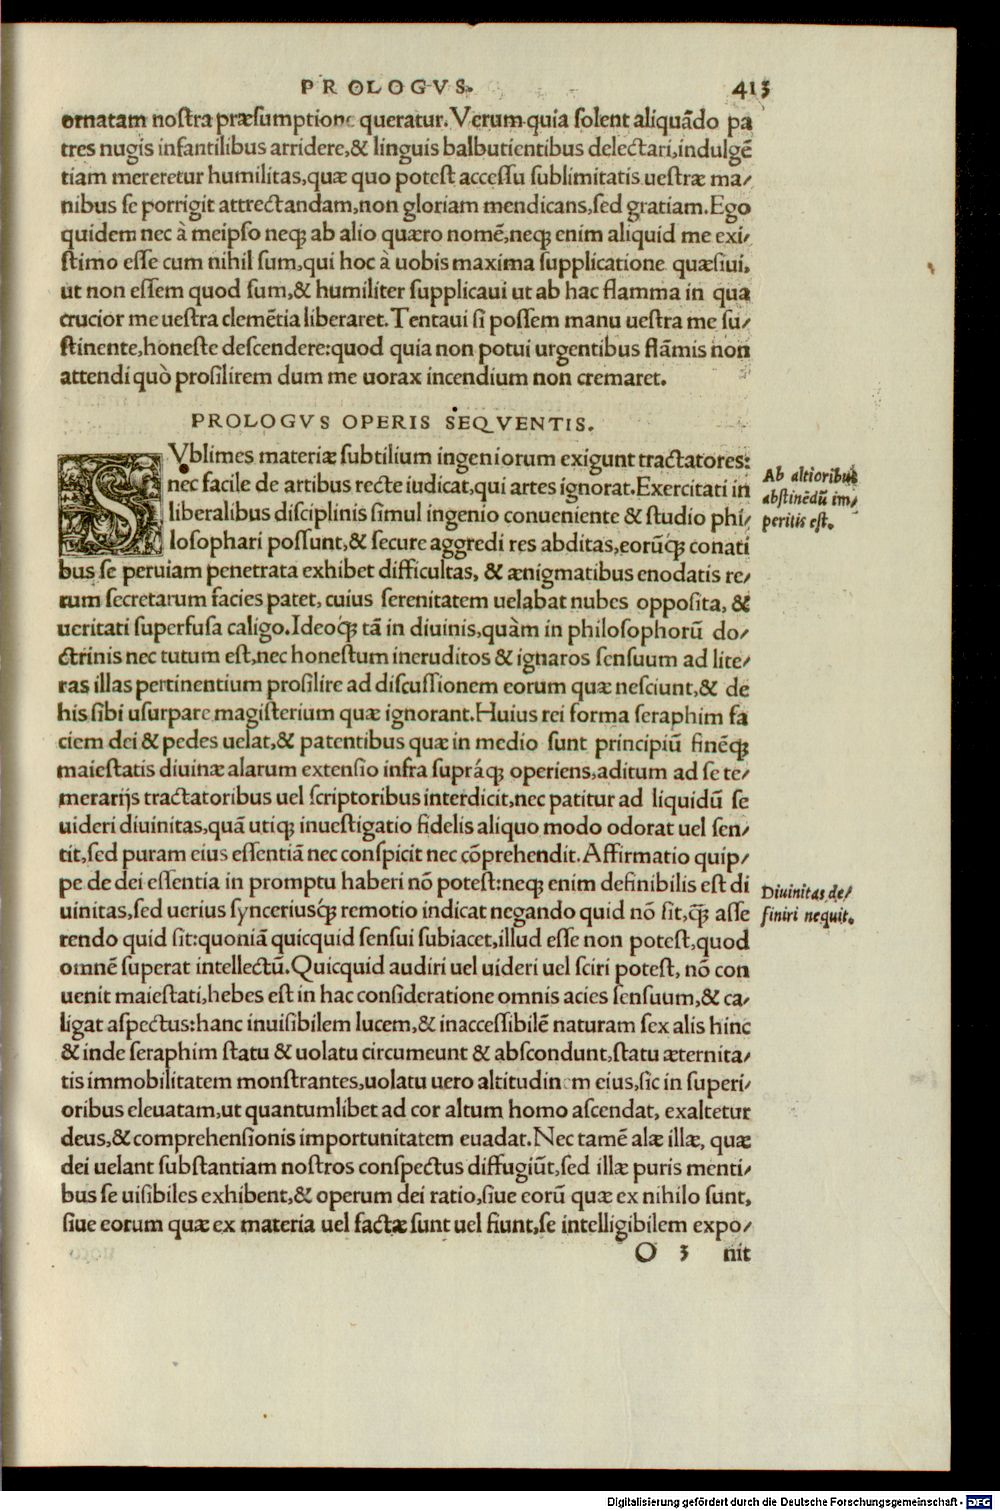 PROLOGVS.
413
ornatam nostra præsumptione queratur. Verum quia solent aliquãdo pa
tres nugis infantilibus arridere,& linguis balbutientibus delectari,indulgẽ
tiam mereretur humilitas,quæ quo potest accessu sublimitatis uestræ ma/
nibus se porrigit attrectandam,non gloriam mendicans,sed gratiam. Ego
quidem nec à meipso neq; ab alio quæro nomẽ,neq; enim aliquid me exi/
stimo esse cum nihil sum,qui hoc à uobis maxima supplicatione quæsiui,
ut non essem quod sum,& humiliter supplicaui ut ab hac flamma in qua
crucior me uestra clemẽtia liberaret. Tentaui si possem manu uestra me su/
stinente,honeste descendere:quod quia non potui urgentibus flãmis non
attendi quò prosilirem dum me uorax incendium non cremaret.
PROLOGVS OPERIS SEQVENTIS.
SVblimes materiæ subtilium ingeniorum exigunt tractatores:
nec facile de artibus recte iudicat,qui artes ignorat. Exercitati in
liberalibus disciplinis simul ingenio conueniente & studio phi/
losophari possunt,& secure aggredi res abditas,eorũq; conati
bus se peruiam penetrata exhibet difficultas, & ænigmatibus enodatis re/
rum secretarum facies patet, cuius serenitatem uelabat nubes opposita, &
ueritati superfusa caligo. Ideoq; tã in diuinis,quàm in philosophorũ do/
ctrinis nec tutum est,nec honestum ineruditos & ignaros sensuum ad lite/
ras illas pertinentium prosilire ad discussionem eorum quæ nesciunt,& de
his sibi usurpare magisterium quæ ignorant. Huius rei forma seraphim fa
ciem dei & pedes uelat,& patentibus quæ in medio sunt principiũ finẽq;
maiestatis diuinæ alarum extensio infra supráq; operiens,aditum ad se te/
merarijs tractatoribus uel scriptoribus interdicit,nec patitur ad liquidũ se
uideri diuinitas,quã utiq; inuestigatio fidelis aliquo modo odorat uel sen/
tit,sed puram eius essentiã nec conspicit nec cõprehendit. Affirmatio quip/
pe de dei essentia in promptu haberi nõ potest:neq; enim definibilis est di
uinitas,sed uerius synceriusq; remotio indicat negando quid nõ sit,q̃ asse
rendo quid sit:quoniã quicquid sensui subiacet,illud esse non potest,quod
omnẽ superat intellectũ. Quicquid audiri uel uideri uel sciri potest, nõ con
uenit maiestati,hebes est in hac consideratione omnis acies sensuum,& ca/
ligat aspectus:hanc inuisibilem lucem,& inaccessibilẽ naturam sex alis hinc
& inde seraphim statu & uolatu circumeunt & abscondunt,statu æternita/
tis immobilitatem monstrantes,uolatu uero altitudinem eius,sic in superi/
oribus eleuatam,ut quantumlibet ad cor altum homo ascendat, exaltetur
deus,& comprehensionis importunitatem euadat. Nec tamẽ alæ illæ, quæ
dei uelant substantiam nostros conspectus diffugiũt,sed illæ puris menti/
bus se uisibiles exhibent,& operum dei ratio,siue eorũ quæ ex nihilo sunt,
siue eorum quæ ex materia uel factæ sunt uel fiunt,se intelligibilem expo/
O 3 nit
Ab altioribus
abstinẽdũ im/
peritis est.
Diuinitas de/
finiri nequit.
Digitalisierung gefördert durch die Deutsche Forschungsgemeinschaft - DFG